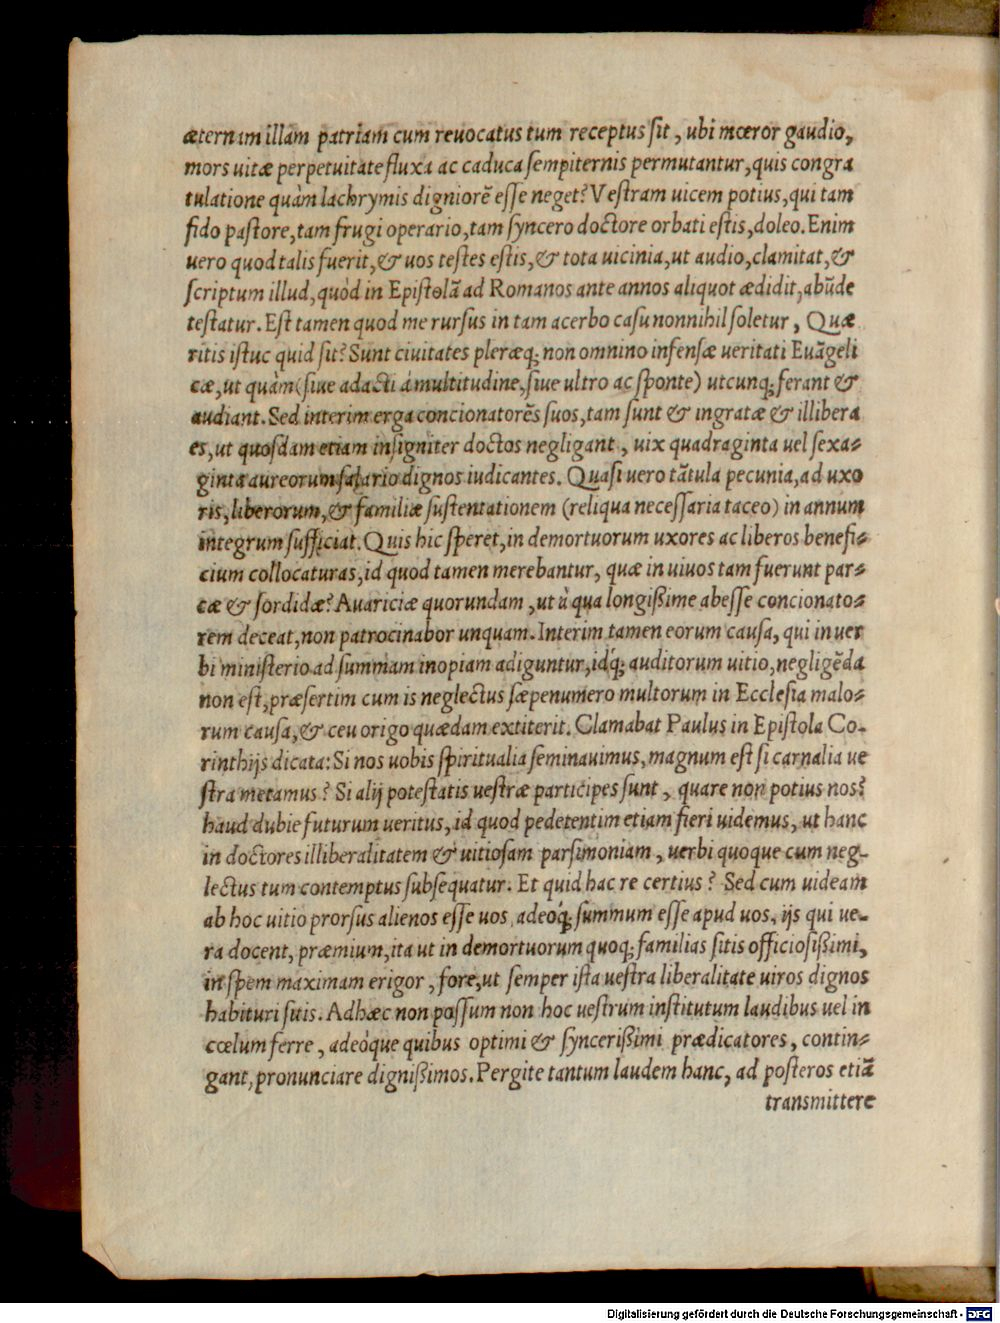 æternam illam patriam cum reuocatus tum receptus sit, ubi mœror gaudio,
mors uitæ perpetuitate fluxa ac caduca sempiternis permutantur, quis congra
tulatione quàm lachrymis digniorē esse neget? Vestram uicem potius, qui tam
fido pastore, tam frugi operario, tam syncero doctore orbati estis, doleo. Enim
uero quod talis fuerit, & uos testes estis, & tota uicinia, ut audio, clamitat, &
scriptum illud, quòd in Epistolā ad Romanos ante annos aliquot ædidit, abūde
testatur. Est tamen quod me rursus in tam acerbo casu nonnihil soletur, Quæ
ritis istuc quid sit? Sunt ciuitates pleræq; non omnino infensæ ueritati Euāgeli
cæ, ut quàm (siue adacti á multitudine, siue ultro ac sponte) utcunq; ferant &
audiant. Sed interim erga concionatorēs suos, tam sunt & ingratæ & illibera
es, ut quosdam etiam insigniter doctos negligant, uix quadraginta uel sexa⸗
ginta aureorum salario dignos iudicantes. Quasi uero tātula pecunia, ad uxo
ris, liberorum, & familiæ sustentationem (reliqua necessaria taceo) in annum
integrum sufficiat. Quis hic speret, in demortuorum uxores ac liberos benefi⸗
cium collocaturas, id quod tamen merebantur, quæ in uiuos tam fuerunt par⸗
cæ & sordidæ? Auariciæ quorundam, ut à qua longißime abesse concionato⸗
rem deceat, non patrocinabor unquam. Interim tamen eorum causa, qui in uer
bi ministerio ad summam inopiam adiguntur, idq́; auditorum uitio, negligēda
non est, præsertim cum is neglectus sæpenumero multorum in Ecclesia malo⸗
rum causa, & ceu origo quædam extiterit. Clamabat Paulus in Epistola Co-
rinthijs dicata: Si nos uobis spiritualia seminauimus, magnum est si carnalia ue
stra metamus? Si alij potestatis uestræ participes sunt, quare non potius nos?
haud dubie futurum ueritus, id quod pedetentim etiam fieri uidemus, ut hanc
in doctores illiberalitatem & uitiosam parsimoniam, uerbi quoque cum neg-
lectus tum contemptus subsequatur. Et quid hac re certius? Sed cum uideam
ab hoc uitio prorsus alienos esse uos, adeoq́; summum esse apud uos, ijs qui ue-
ra docent, præmium, ita ut in demortuorum quoq; familias sitis officiosißimi,
in spem maximam erigor, fore, ut semper ista uestra liberalitate uiros dignos
habituri sitis. Ad hæc non possum non hoc uestrum institutum laudibus uel in
cœlum ferre, adeòque quibus optimi & syncerißimi prædicatores, contin⸗
gant, pronunciare dignißimos. Pergite tantum laudem hanc, ad posteros etiā
transmittere
Digitalisierung gefördert durch die Deutsche Forschungsgemeinschaft - DFG